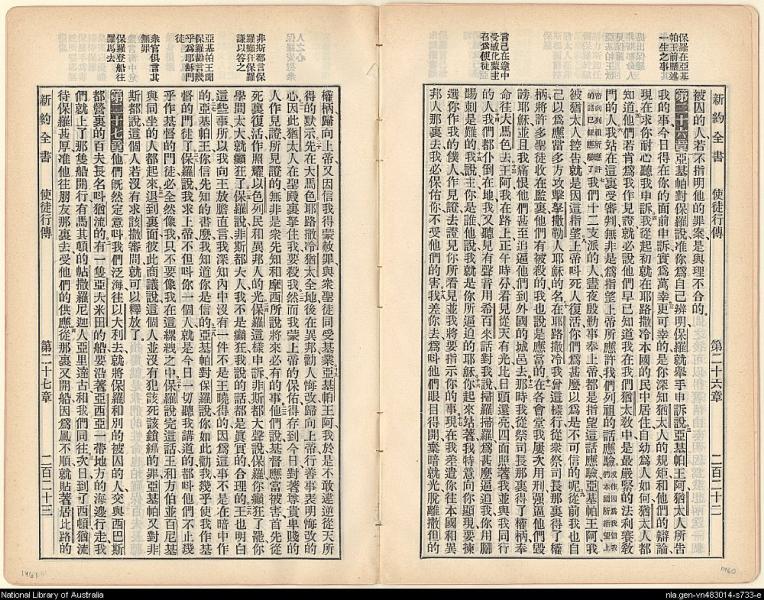 新約全書 使徒行傳 第二十六章 二百二十二
保羅在亞基
帕王前歷述
一生之事
言己在途中
受感化蒙主
召爲使徒
被囚的人若不指明他的罪案是與理不合的
第二十六章亞基帕對保羅說准你爲自己辨明保羅就舉手申訴說亞基帕王阿猶太人所告
我的事今日得在你的面前申訴實爲萬幸更可幸的是你深知猶太人的規矩和他們的辯論
現在求你耐心聽我申訴我從起初就在耶路撒冷本國的民中居住自幼爲人如何猶太人都
知道他們若肯爲我作見證就必說他們早已知道我在我們猶太教中是最嚴緊的法利賽敎
門的人我站在這裏受審判無非是爲指望上帝所應許我們列祖的話應驗
我們十二支派的人晝夜殷勤事奉上帝都是指望這話應驗亞基帕王阿我
被猶太人控告就是因這指望上帝叫死人復活你們爲甚麼以爲是不可信的呢從前我也自
己以爲應當多方攻擊拿撒勒人耶穌的名在耶路撒冷我曾這樣行從衆祭司長那裏得了權
柄將許多聖徒收在監裏他們有被殺的我也說是應當的在各會堂我屢次用刑強逼他們毀
謗耶穌並且我痛恨他們甚至追逼他們到外國的城邑去那時我從祭司長那裏得了權柄奉
命往大馬色去王阿我在路上正午時分看見從天有光比日頭還亮四面照著我並與我同行
的人我們都仆倒在地我又聽見有聲音用希百來話對我說掃羅掃羅爲甚麼逼迫我你用腳
踢刺是難的我說主你是誰他說我就是你所逼迫的耶穌你起來站著我特意向你顯現要揀
選你作我的僕人作見證證見你所看見並我將要指示你的事現在我差遣你往本國和異
邦人那裏去我必保佑你不受他們的害我差你去爲叫他們眼目得開棄暗就光脫離撒但的
新約全書 使徒行傳 第二十七章 二百二十三
非斯都言保
羅癲狂保羅
謙以答之
亞基帕王聞
保羅勸言幾
乎爲耶穌門
徒
衆官俱言其
無罪
保羅登船往
羅馬去
權柄歸向上帝又因信我得蒙赦罪與衆聖徒同受基業亞基帕王阿我於是不敢違逆從天所
得的默示先在大馬色耶路撒冷猶太全地後在異邦勸人悔改歸向上帝行善事表明悔改的
心因此猶太人在聖殿裏拏住我要殺我然而我蒙上帝的保佑得存到今日對著尊貴卑賤的
人作見證所見證的無非是衆先知和摩西所說將來必有的事他們說基督應當被害首先從
死裏復活作照耀以色列民和異邦人的光保羅這樣申訴非斯都大聲說保羅你癲狂了罷你
學問太大就癲狂了保羅說非斯都大人我不是癲狂我說的話都是真實的合理的王也明白
這些事所以我向王放膽直言我深知內中沒有一件不是王曉得的因爲這事不是在暗中作
的亞基帕王你信先知的書麼我知道你是信的亞基帕對保羅說你如此勸我幾乎使我作基
督的門徒了保羅說我求上帝不但叫你一個人就是今日一切聽我講道的都叫他們不止幾
乎作基督的門徒必全然像我只不要像我在這縲絏之中保羅說完這話王和方伯並百尼基
與同坐的人都起來退到裏面彼此商議說這個人並沒有犯該死該鎖綁的罪亞基帕又對非
斯都說這個人若沒有求該撒審問就可以釋放了
第二十七章他們旣然定意叫我們泛海往以大利去就將保羅和別的被囚的人交與西巴斯
都營裏的百夫長名叫猶流的有一隻亞大米田的船要沿著亞西亞一帶地方的海邊行走我
們就上了那隻船開行有馬其頓的帖撒羅尼迦人亞里達古和我們同往次日到了西頓猶流
待保羅甚厚准他往朋友那裏去受他們的供應從那裏又開船因爲風不順就貼著居比路的
National Library of Australia
nla.gen-vn483014-s733-e